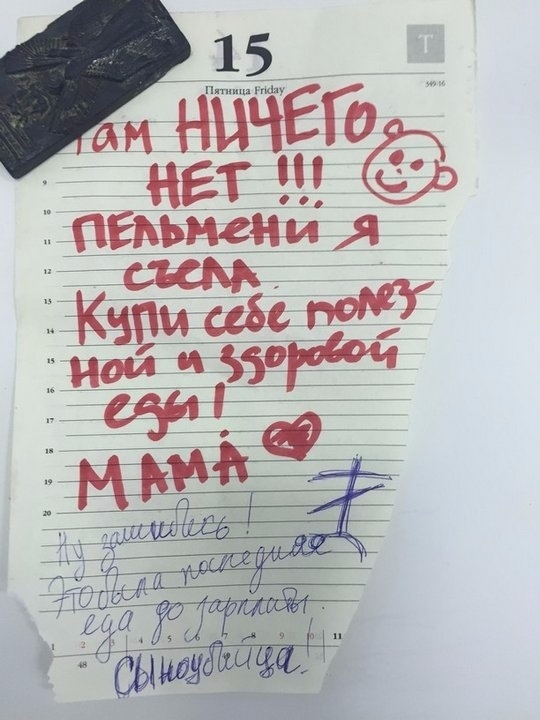 15
T
Пятница Friday
349-16
там НИЧЕГО
НЕТ !!!
9
10
ПЕЛЬМЕНИ Я
11
12
СЪЕЛА.
13
Купи себе полез-
14
ной и здоровой
15
16
еды!
17
18
МАМА
19
20
Ну зашибись!
Это была последняя
еда до зарплаты.
1 2 3 4 5 6 7 8 9 10 11
48
Сыноубийца!